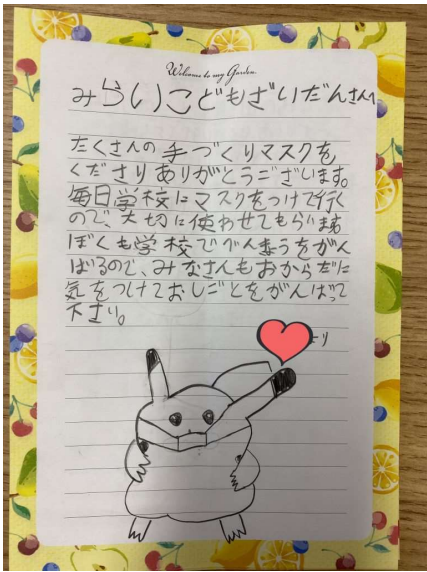 Welcome to my Garden.
みらいこどもざいだんさんへ
たくさんの手づくりマスクを
くださりありがとうございます。
毎日学校にマスクをつけて行く
ので、大切に使わせてもらいます
ぼくも学校でべんきょうをがん
ばるので、みなさんもおからだに
気をつけておしごとをがんばって
下さい。
より